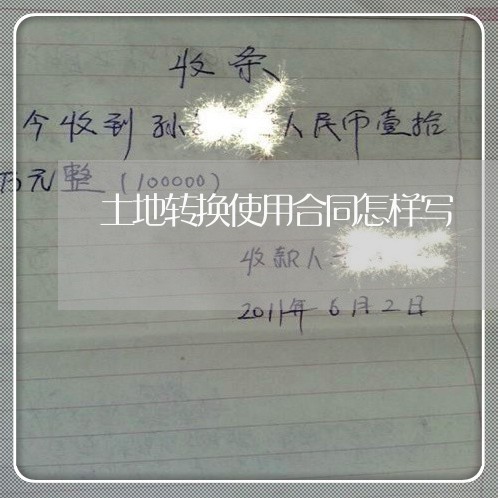 收条
今收到孙 人民币壹拾
万元整（100000）
土地转换使用合同怎样写
收款人
2011年6月2日